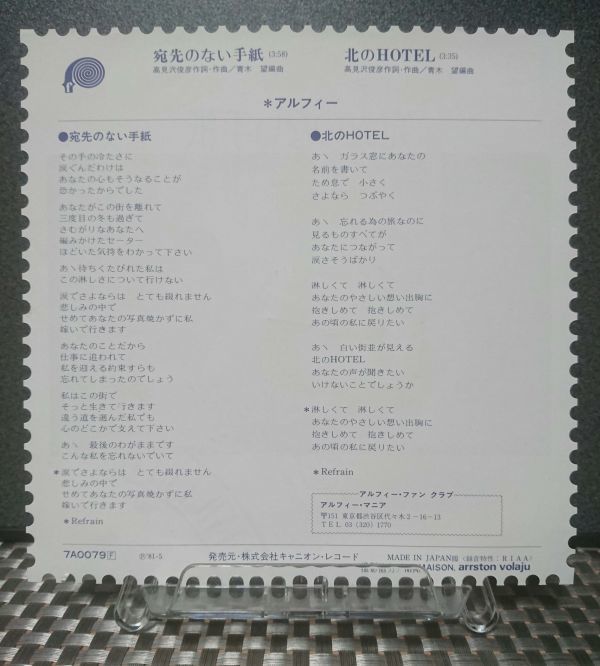 宛先のない手紙(3:58)
高見沢俊彦作詞・作曲／青木　望編曲
北のHOTEL(3:35)
高見沢俊彦作詞・作曲／青木　望編曲
＊アルフィー
●宛先のない手紙
その手の冷たさに
涙ぐんだわけは
あなたの心もそうなることが
恐かったからでした
あなたがこの街を離れて
三度目の冬も過ぎて
さむがりなあなたへ
編みかけたセーター
ほどいた気持をわかって下さい
あゝ待ちくたびれた私は
この淋しさについて行けない
涙でさよならは　とても綴れません
悲しみの中で
せめてあなたの写真焼かずに私
嫁いで行きます
あなたのことだから
仕事に追われて
私を迎える約束すらも
忘れてしまったのでしょう
私はこの街で
そっと生きて行きます
違う道を選んだ私でも
心のどこかで支えて下さい
あゝ　最後のわがままです
こんな私を忘れないでいて
＊涙でさよならは　とても綴れません
悲しみの中で
せめてあなたの写真焼かずに私
嫁いで行きます
＊Refrain
●北のHOTEL
あゝ　ガラス窓にあなたの
名前を書いて
ため息で　小さく
さよなら　つぶやく
あゝ　忘れる為の旅なのに
見るものすべてが
あなたにつながって
涙さそうばかり
淋しくて　淋しくて
あなたのやさしい想い出胸に
抱きしめて　抱きしめて
あの頃の私に戻りたい
あゝ　白い街並が見える
北のHOTEL
あなたの声が聞きたい
いけないことでしょうか
＊淋しくて　淋しくて
あなたのやさしい想い出胸に
抱きしめて　抱きしめて
あの頃の私に戻りたい
＊Refrain
アルフィー・ファン クラブ
アルフィー・マニア
〒151 東京都渋谷区代々木2-16-13
TEL 03 (320) 1770
7A0079 F
Ⓟ'81・5
発売元・株式会社キャニオン・レコード
MADE IN JAPAN（録音特性：RIAA）
MAISON. arrston volaju